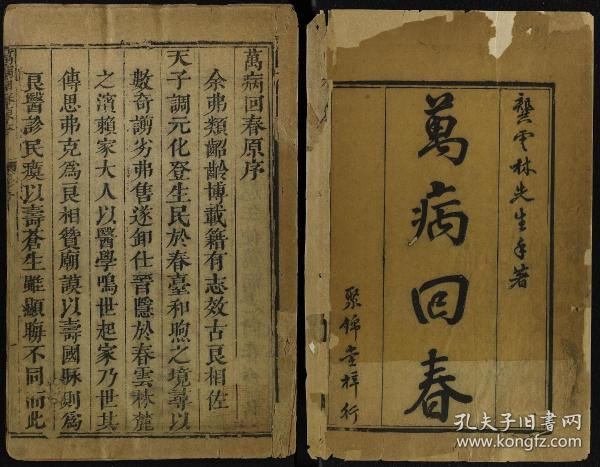 龔雲林先生手著
萬病回春
聚錦堂梓行
萬病回春原序
余弗類齠齡博載籍有志效古良相佐
天子調元化登生民於春臺和煦之境壽以
數奇謭劣弗售遂卸仕晉隱於春雲林麓
之濱賴家大人以醫學鳴世起家乃世其
傳思弗克爲良相贊廟謨以壽國脉則爲
良醫診民瘼以壽蒼生雖顯晦不同而此
孔夫子旧书网
www.kongfz.com